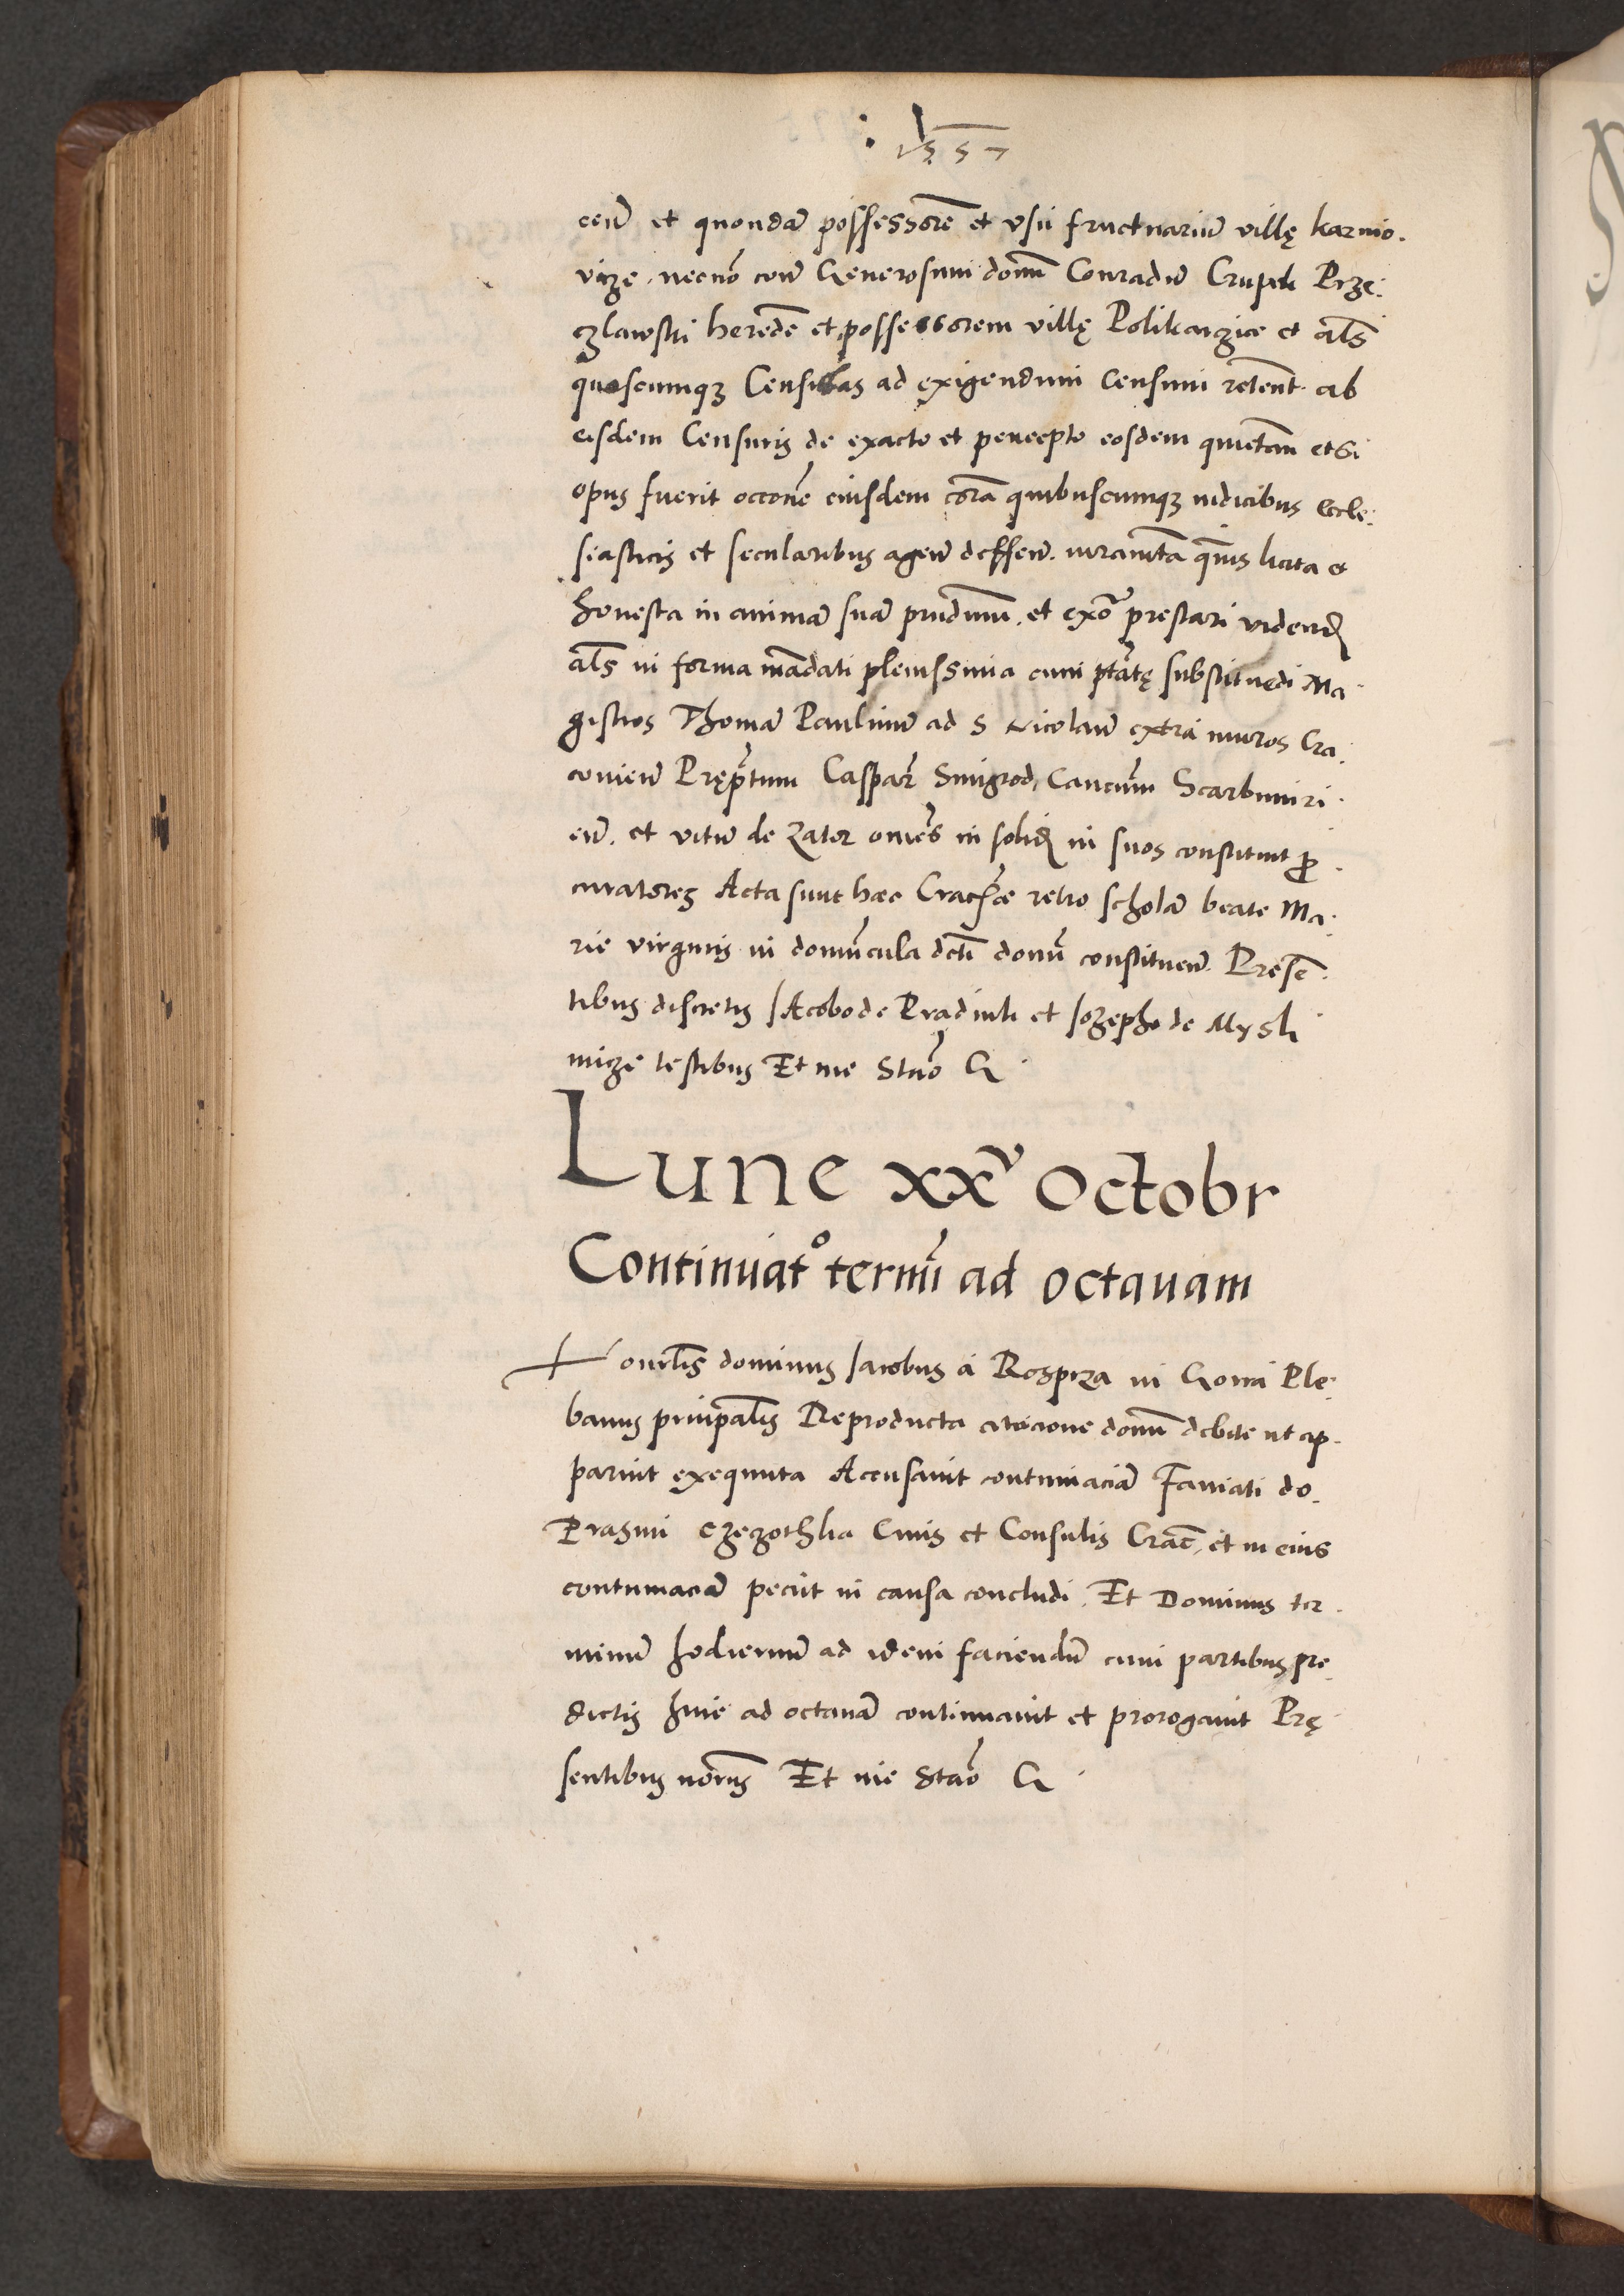 1557
cen̄ et quondā possessorē et vsu fructuariū villę karnio.
vicze, necnō con̄ Generosum domn̄ Conradū Crupek Prze.
czlawski heredē et possessorem villę Polikarzicze et als̄
quoscumqȝ Censitas ad exigendum Censum retent. ab
eisdem Censuris de exacto et percepto eosdem quietan̄ et si
opus fuerit occōne eiusdem corā quibuscumqȝ iudicibus Eccle.
siasticis et secularibus agen̄ deffen̄. iuramta quęuis licita et
honesta in animā suā prndmn̄. et exōa prestari viden̄
als̄ in forma mādati plenissima cum ptatę substituēdi Ma.
gistros Thomā Paulinū ad S Nicolaū extra muros Cra.
couien̄ Pręptum Caspar̄ Smigrod, Cancum̄ Scarbimiri.
en̄. et vitū de Zator omēs in solid in suos constituit pro
curatores Acta sunt hæc Cracoæ retro scholā beate Ma.
rie virginis in domūcula dcti domn̄ constituen̄. Presē.
tibus discretis Iacobo de Pradnik et Iozepho de Mysli
micze testibus Et me Stāo G
Lune xxv Octobr
Continuat° termi ad octauam
Honorlis dominus Iacobus a Rospcza in Gora Ple.
banus principalis Reproducta citacione domn̄ debite ut ap.
paruit exequuta Accusauit contumaciā Famati do.
Erasmi Czeczothka Ciuis et Consulis Crac̄, et in eius
contumaciā peciit in causa concludi. Et Dominus ter.
minū hodiernū ad idem faciendū cum partibus pre.
dictis huic ad octauā continuauit et prorogauit Prę
sentibus notrus Et me Stāo G